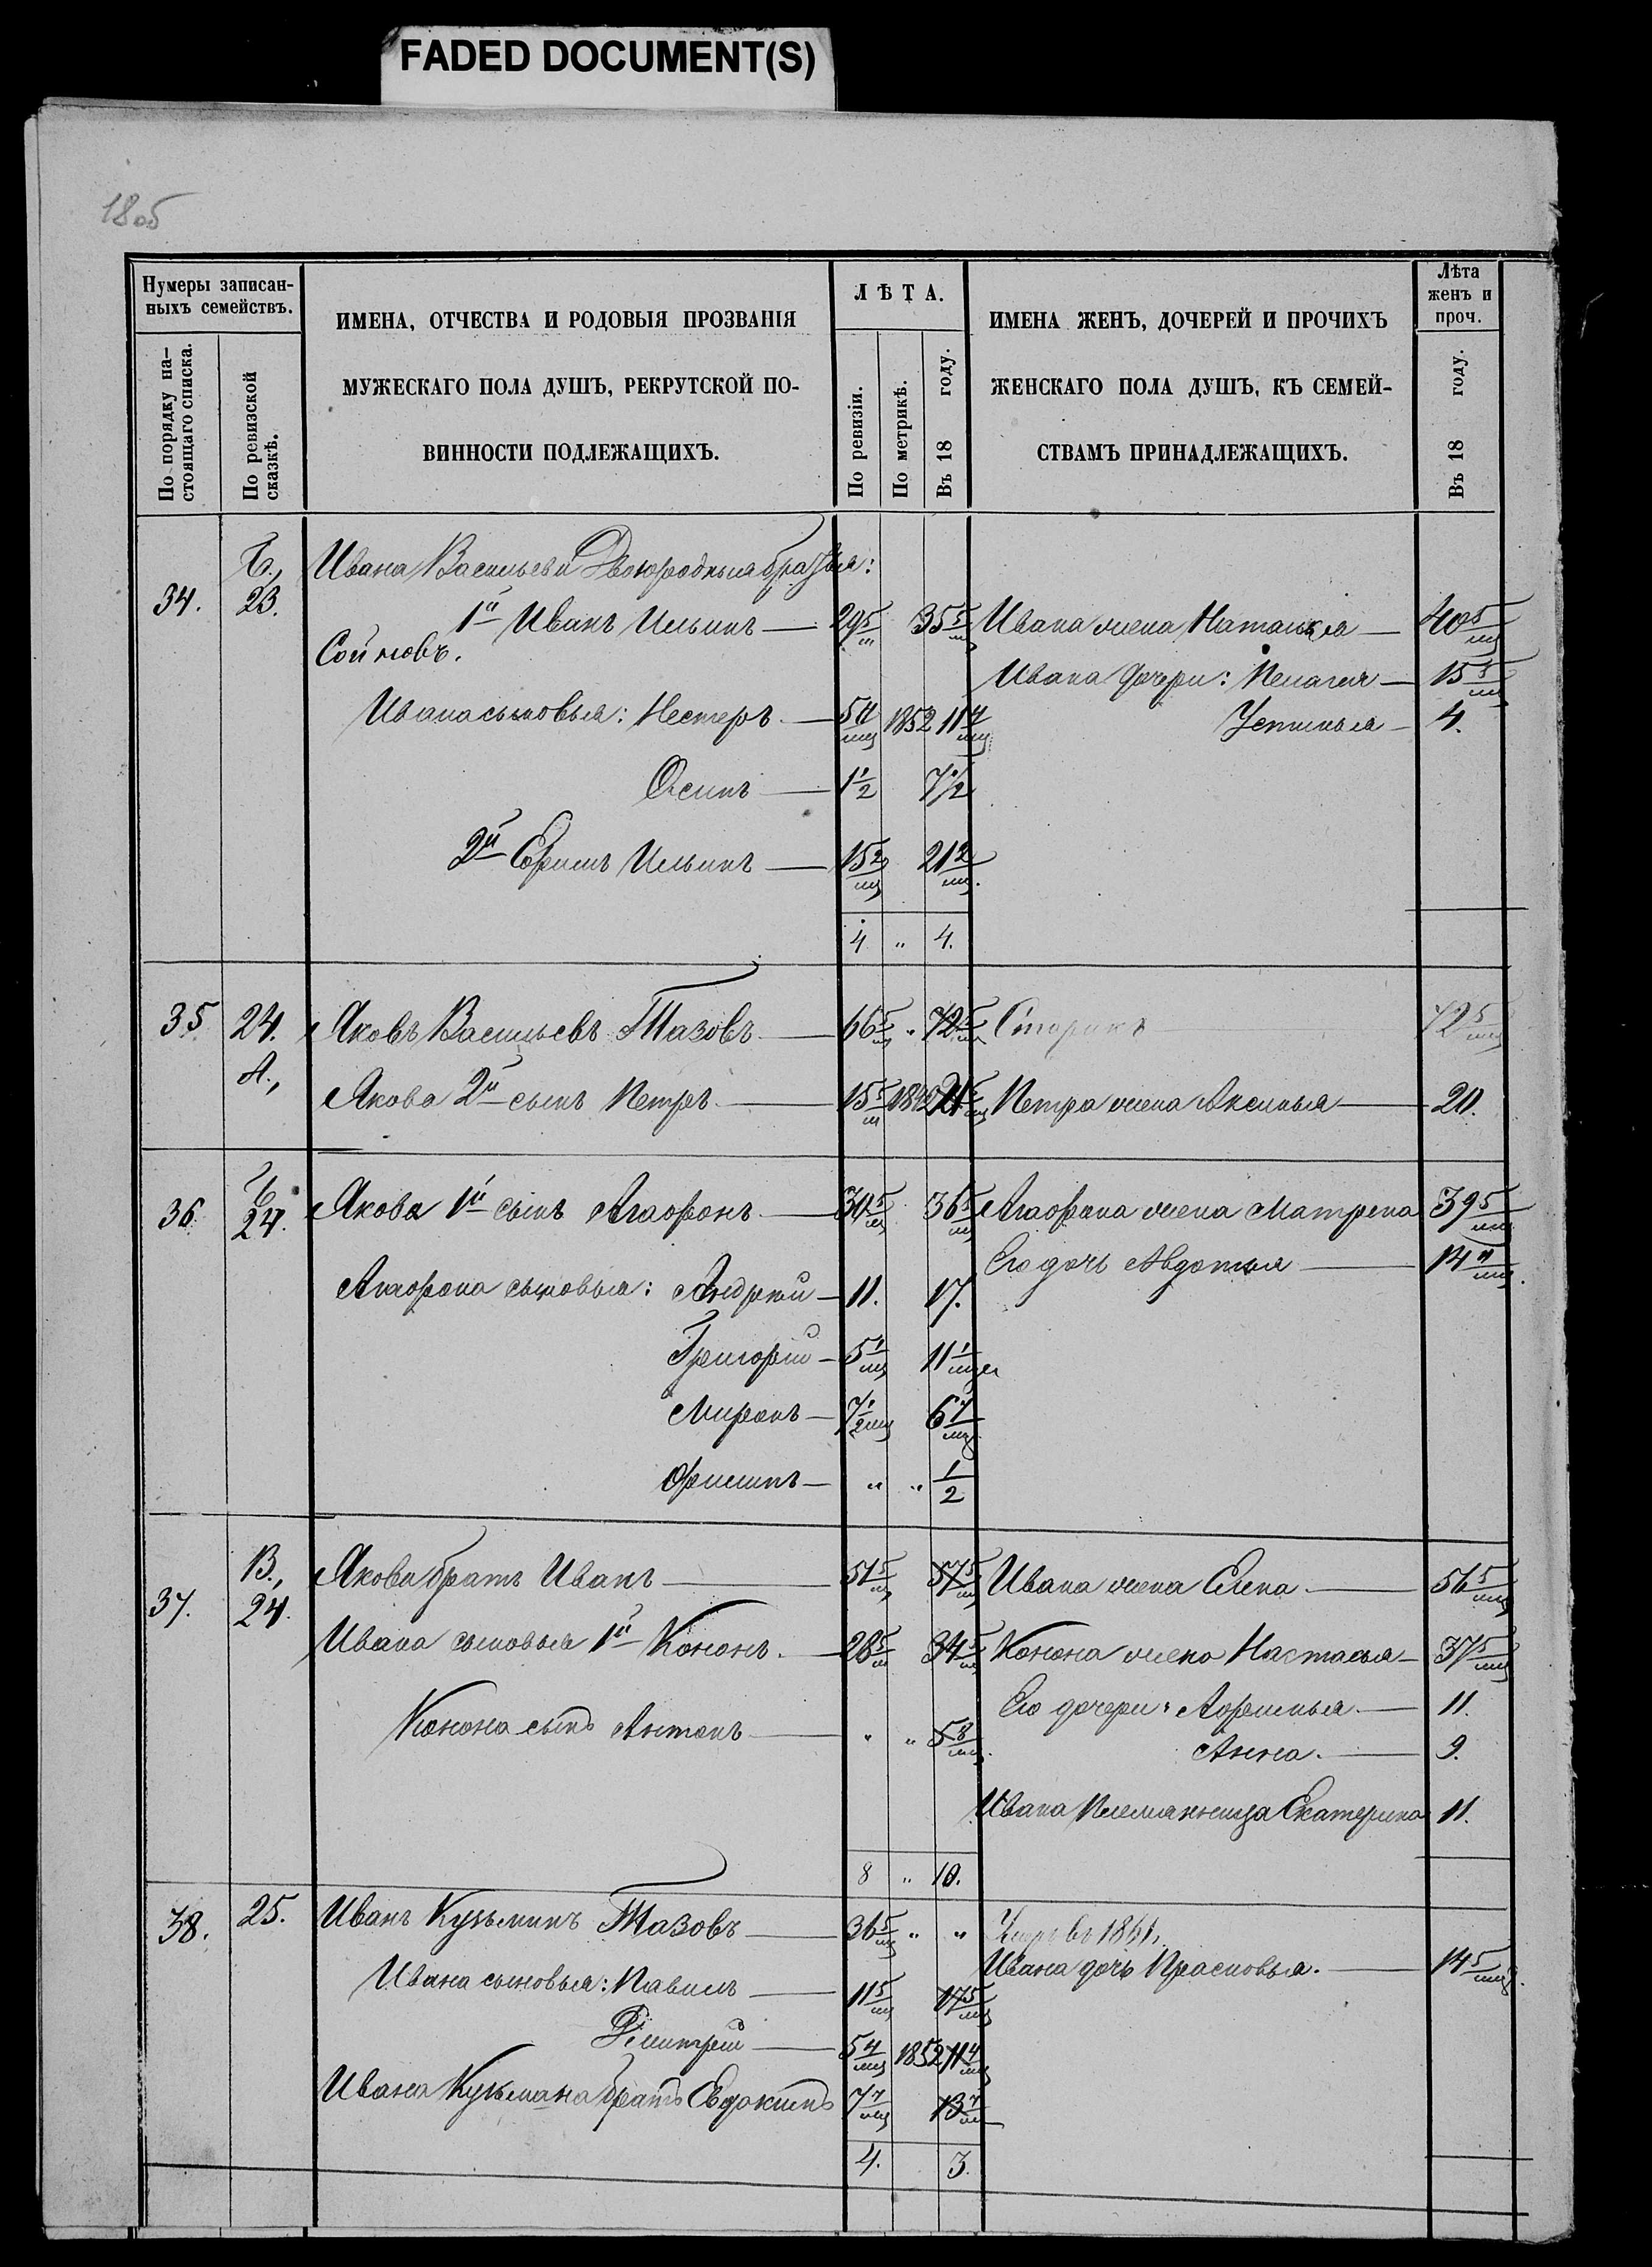 FADED DOCUMENT(S)
1805
Нумеры записан-
ныхъ семействъ.
По порядку на-
стоящаго списка.
По ревизской
сказкѣ.
ИМЕНА, ОТЧЕСТВА И РОДОВЫЯ ПРОЗВАНІЯ
МУЖЕСКАГО ПОЛА ДУШЪ, РЕКРУТСКОЙ ПО-
ВИННОСТИ ПОДЛЕЖАЩИХЪ.
ЛѢТА.
По ревизіи.
По метрикѣ.
Въ 18 году.
ИМЕНА ЖЕНЪ, ДОЧЕРЕЙ И ПРОЧИХЪ
ЖЕНСКАГО ПОЛА ДУШЪ, КЪ СЕМЕЙ-
СТВАМЪ ПРИНАДЛЕЖАЩИХЪ.
Лѣта
женъ и
проч.
Въ 18 году.
Б., Ивана Васильева Двоюродныя братья:
34. 23. 1й Иванъ Ильинъ — 29 5/м 35 5/м Ивана жена Наталья — 40 5/мц
Сойновъ.
Ивана дочери: Пелагея — 15 5/мц
Ивана сыновья: Нестеръ — 5 4/мц 1852 11 4/мц Устинья — 4.
Осипъ — 1 1/2 7 1/2
2й Ефимъ Ильинъ — 15 2/мц 21 2/мц.
4 " 4.
35 24. Яковъ Васильевъ Тазовъ — 66 5/м " 72 5/м Старикъ 72 5/мц
А., Якова 2й сынъ Петръ — 15 5/м 21 5/мц Петра жена Аксинья — 20.
Б.
36. 24. Якова 1й сынъ Агафонъ — 30 5/м 36 5/м Агафона жена Матрена 39 5/мц
Его дочь Авдотья — 14 4/мц.
Агафона сыновья: Андрей — 11. 17.
Григорій — 5 1/мц 11 1/мц
Миронъ — 7 1/2 мц 6 7/мц
Филипъ — " " 1/2
В., Якова братъ Иванъ — 51 5/м 57 5/м Ивана жена Елена — 56 5/мц
37. 24. Ивана сыновья 1й Кононъ. — 28 5/м 34 5/м Конона жена Настасья — 37 5/мц
Его дочери: Афимья — 11.
Конона сынъ Антонъ — " " 5 8/мц. Анна. — 9.
Ивана Племянница Екатерина 11.
8 " 10.
38. 25. Иванъ Кузьминъ Тазовъ — 36 5/мц " " Умеръ въ 1861.
Ивана дочь Прасковья. — 14 5/мц.
Ивана сыновья: Павилъ — 11 5/мц 17 5/мц
Дмитрей — 5 4/мц 1852 11 4/мц
Ивана Кузьмина братъ Евдокимъ 7 7/мц 13 7/м
4. 3.